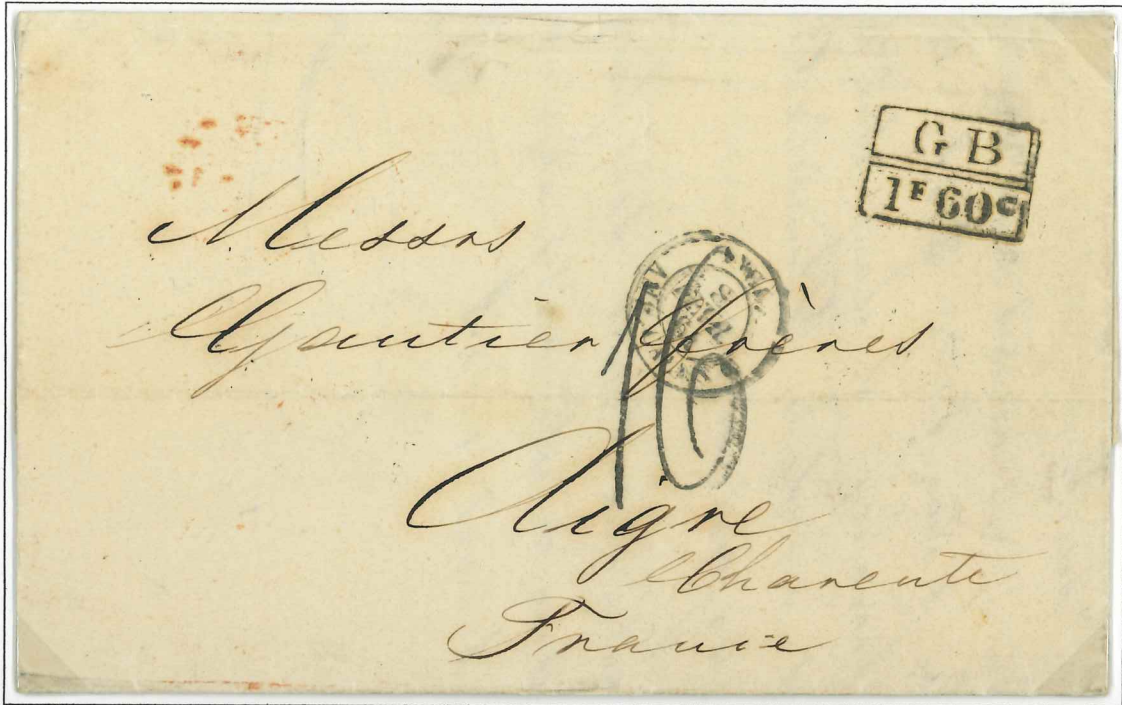 G B
1F 60c
Messrs
Gautier Frères
16
Aigre
Charente
France